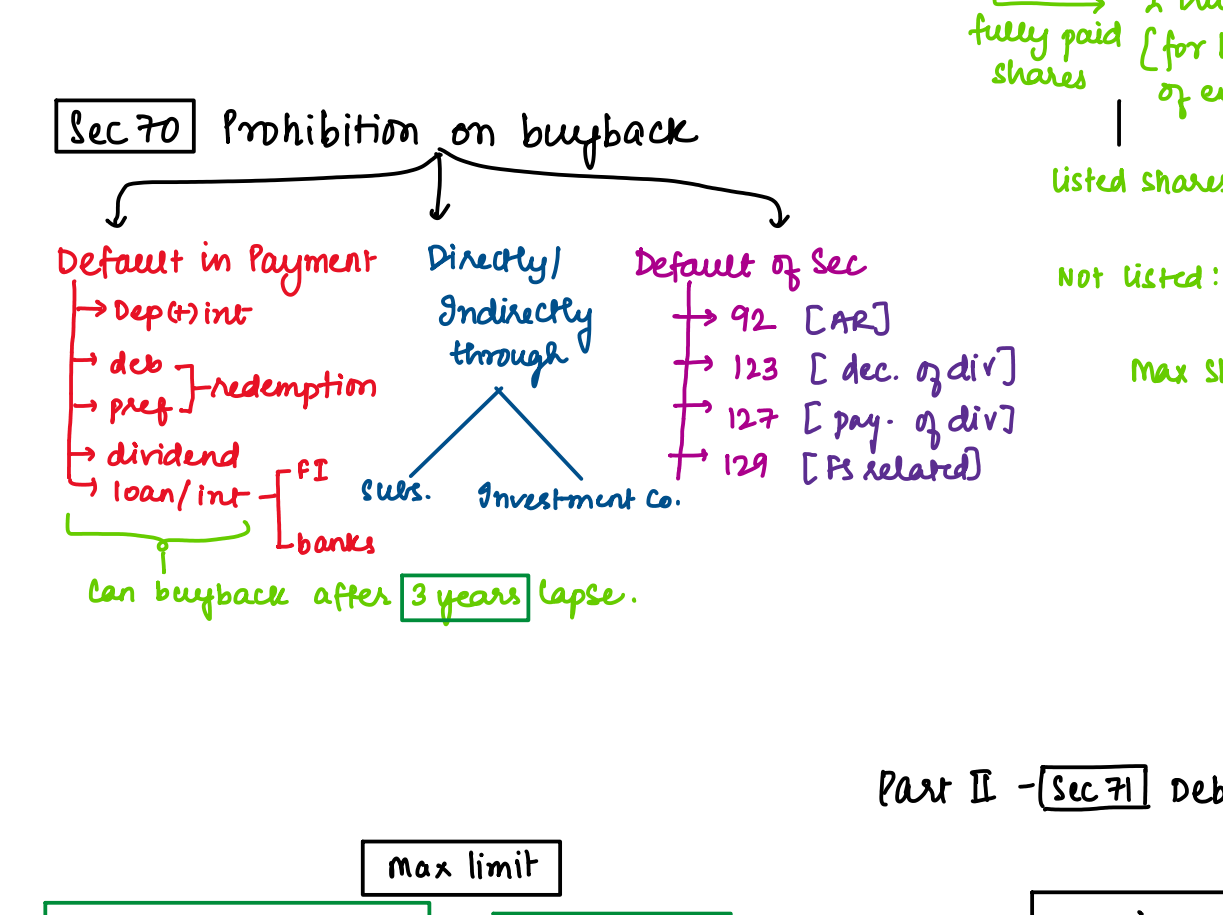 fully paid
shares
[for
of
Sec 70 Prohibition on buyback
Listed shares
Not listed:
Max
Default in Payment
→ Dep(+) int
→ deb
→ pref
redemption
→ dividend
→ loan/int
FI
banks
Can buyback after 3 years lapse.
Directly/
Indirectly
through
Subs.
Investment Co.
Default of Sec
→ 92 [AR]
→ 123 [dec. of div]
→ 127 [pay. of div]
→ 129 [FS related]
Part II - Sec 71
Max limit